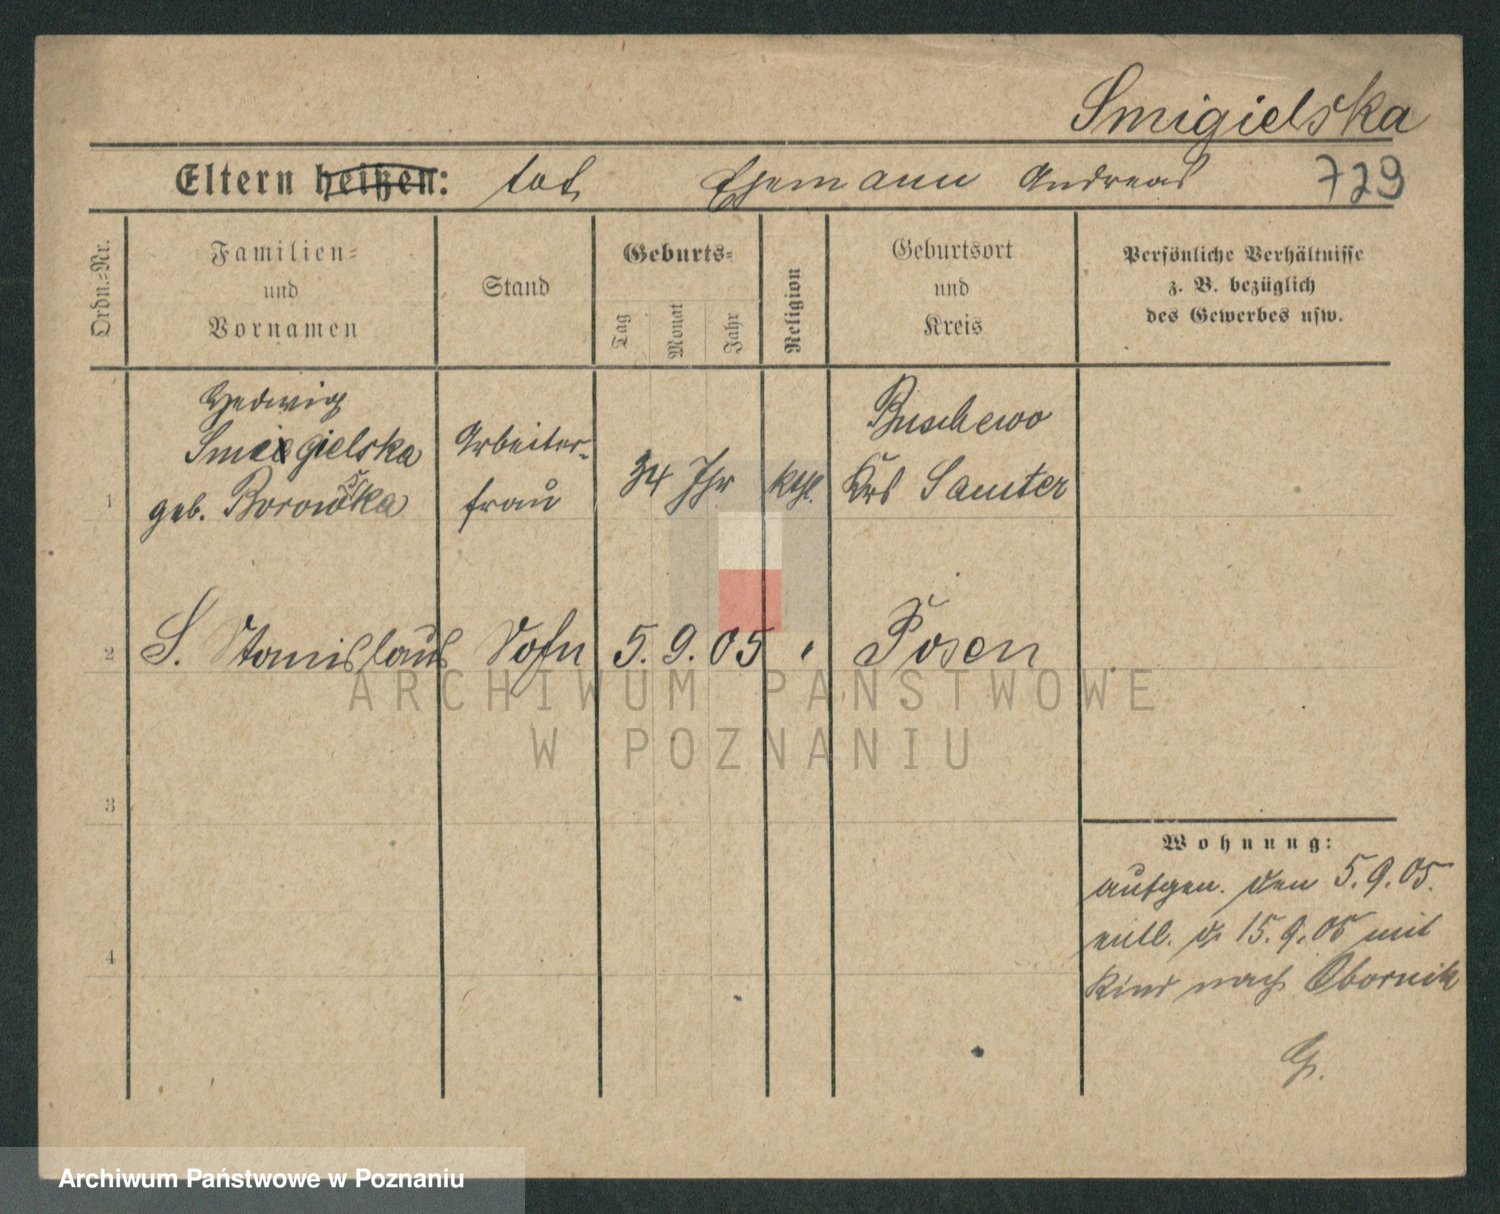 Smigielska
Eltern heißen: tot Ehemann Andreas 729
Ordn.=Nr.
Familien=
und
Vornamen
Stand
Geburts=
Tag
Monat
Jahr
Religion
Geburtsort
und
Kreis
Persönliche Verhältnisse
z. B. bezüglich
des Gewerbes usw.
1
Hedwig
Smigielska
geb. Borowska
Arbeiter-
frau
34 Jhr
kth.
Buschewo
Krs Samter
2
S. Stanislaus
Sohn
5. 9. 05
"
Posen
3
4
Wohnung:
aufgen. den 5. 9. 05.
entl. d. 15. 9. 05 mit
Kind nach Obornik
G.
ARCHIWUM PAŃSTWOWE
W POZNANIU
Archiwum Państwowe w Poznaniu